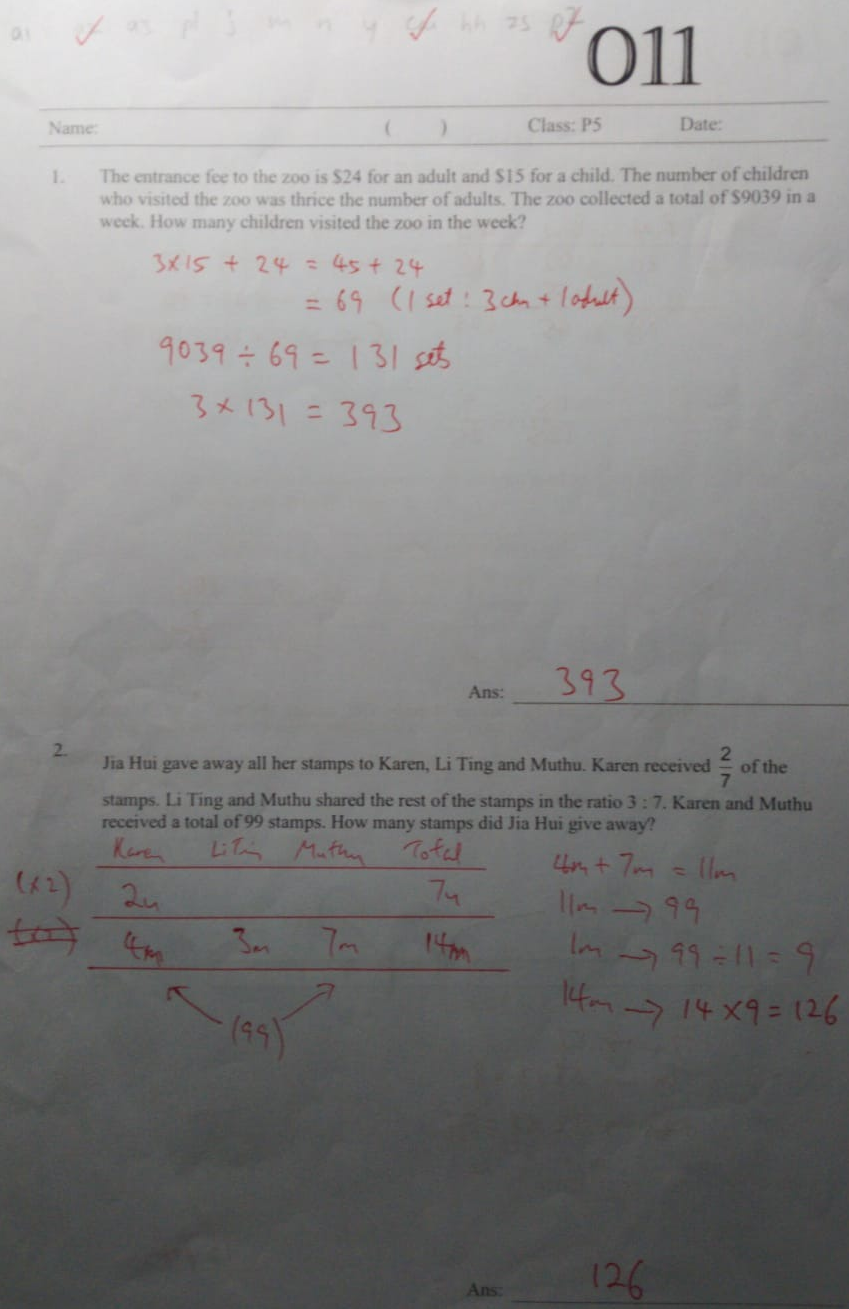 a1 as pl j m n y hh zs
011
Name: ( ) Class: P5 Date:
1. The entrance fee to the zoo is $24 for an adult and $15 for a child. The number of children
who visited the zoo was thrice the number of adults. The zoo collected a total of $9039 in a
week. How many children visited the zoo in the week?
3×15 + 24 = 45 + 24
= 69 (1 set : 3 chn + 1 adult)
9039 ÷ 69 = 131 sets
3 × 131 = 393
Ans: 393
2. Jia Hui gave away all her stamps to Karen, Li Ting and Muthu. Karen received 2/7 of the
stamps. Li Ting and Muthu shared the rest of the stamps in the ratio 3 : 7. Karen and Muthu
received a total of 99 stamps. How many stamps did Jia Hui give away?
Karen Li Tin Muthu Total
(×2) 2u 7u
4m 3m 7m 14m
(99)
4m + 7m = 11m
11m → 99
1m → 99 ÷ 11 = 9
14m → 14 × 9 = 126
Ans: 126